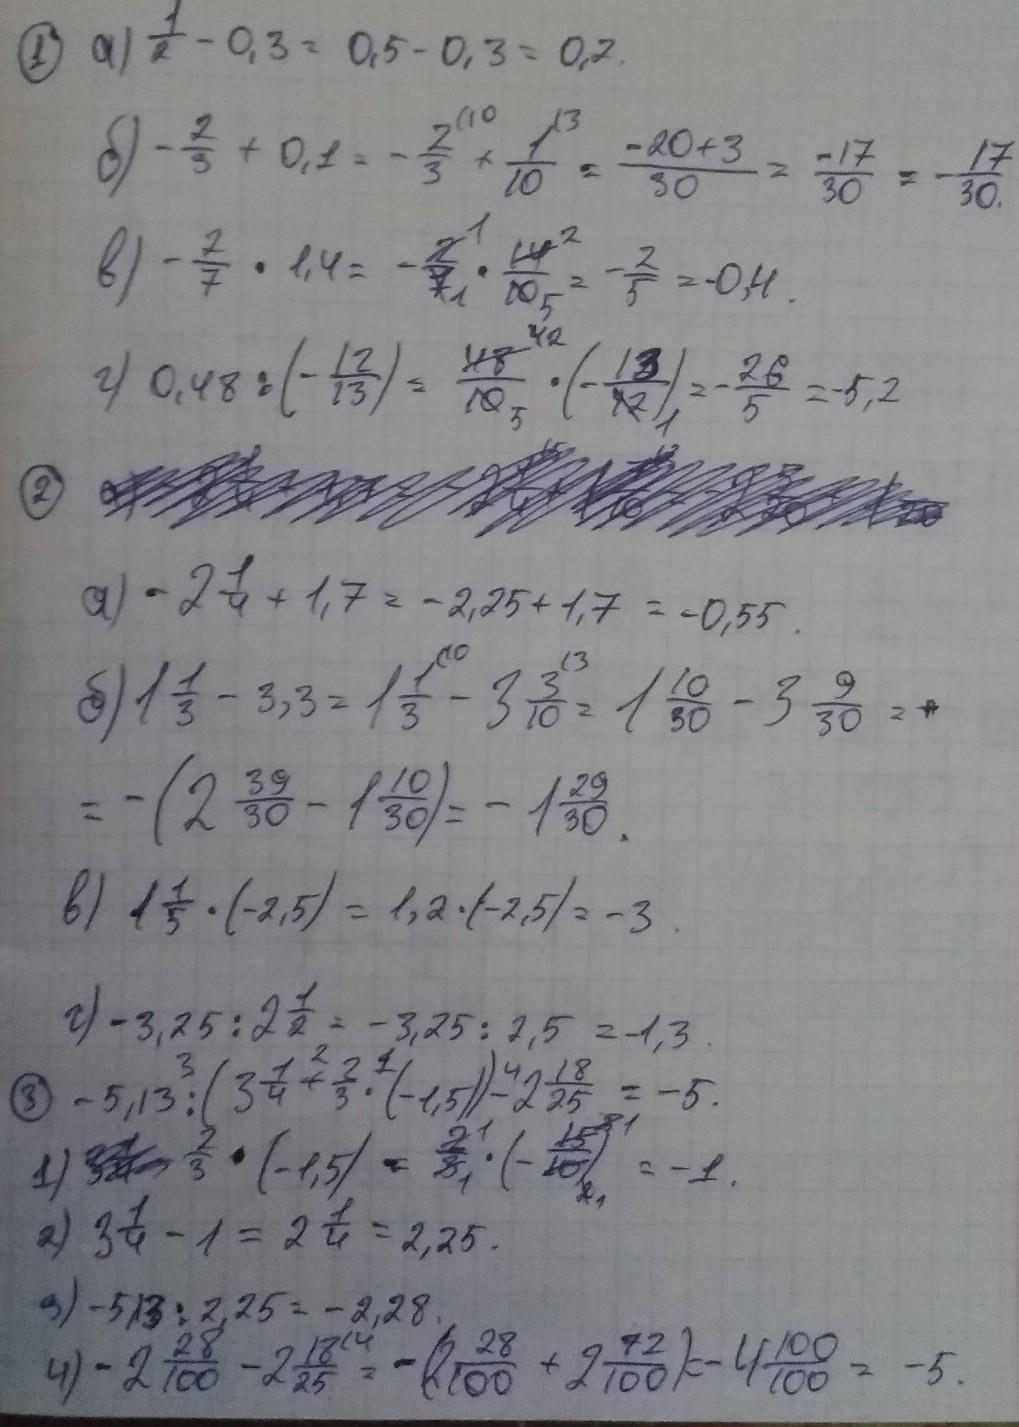 1 а) 1/2 - 0,3 = 0,5 - 0,3 = 0,2.
б) -2/3 + 0,1 = -2/3 (10 + 1/10 (3 = (-20+3)/30 = -17/30 = -17/30.
в) -2/7 · 1,4 = -2/7 1 1 · 14/10 2 5 = -2/5 = -0,4.
г) 0,48 : (-12/13) = 48/10 42 5 · (-13/12 1) = -26/5 = -5,2
2
а) -2 1/4 + 1,7 = -2,25 + 1,7 = -0,55.
б) 1 1/3 - 3,3 = 1 1/3 (10 - 3 3/10 (3 = 1 10/30 - 3 9/30 =
= -(2 39/30 - 1 10/30) = -1 29/30.
в) 1 1/5 · (-2,5) = 1,2 · (-2,5) = -3.
г) -3,25 : 2 1/2 = -3,25 : 2,5 = -1,3.
3 -5,13 :3 (3 1/4 +2 2/3 ·1 (-1,5)) -4 2 18/25 = -5.
1) 2/3 · (-1,5) = 2/3 1 1 · (-15/10) 1 = -1.
2) 3 1/4 - 1 = 2 1/4 = 2,25.
3) -5,13 : 2,25 = -2,28.
4) -2 28/100 - 2 18/25 (4 = -(2 28/100 + 2 72/100) = -4 100/100 = -5.